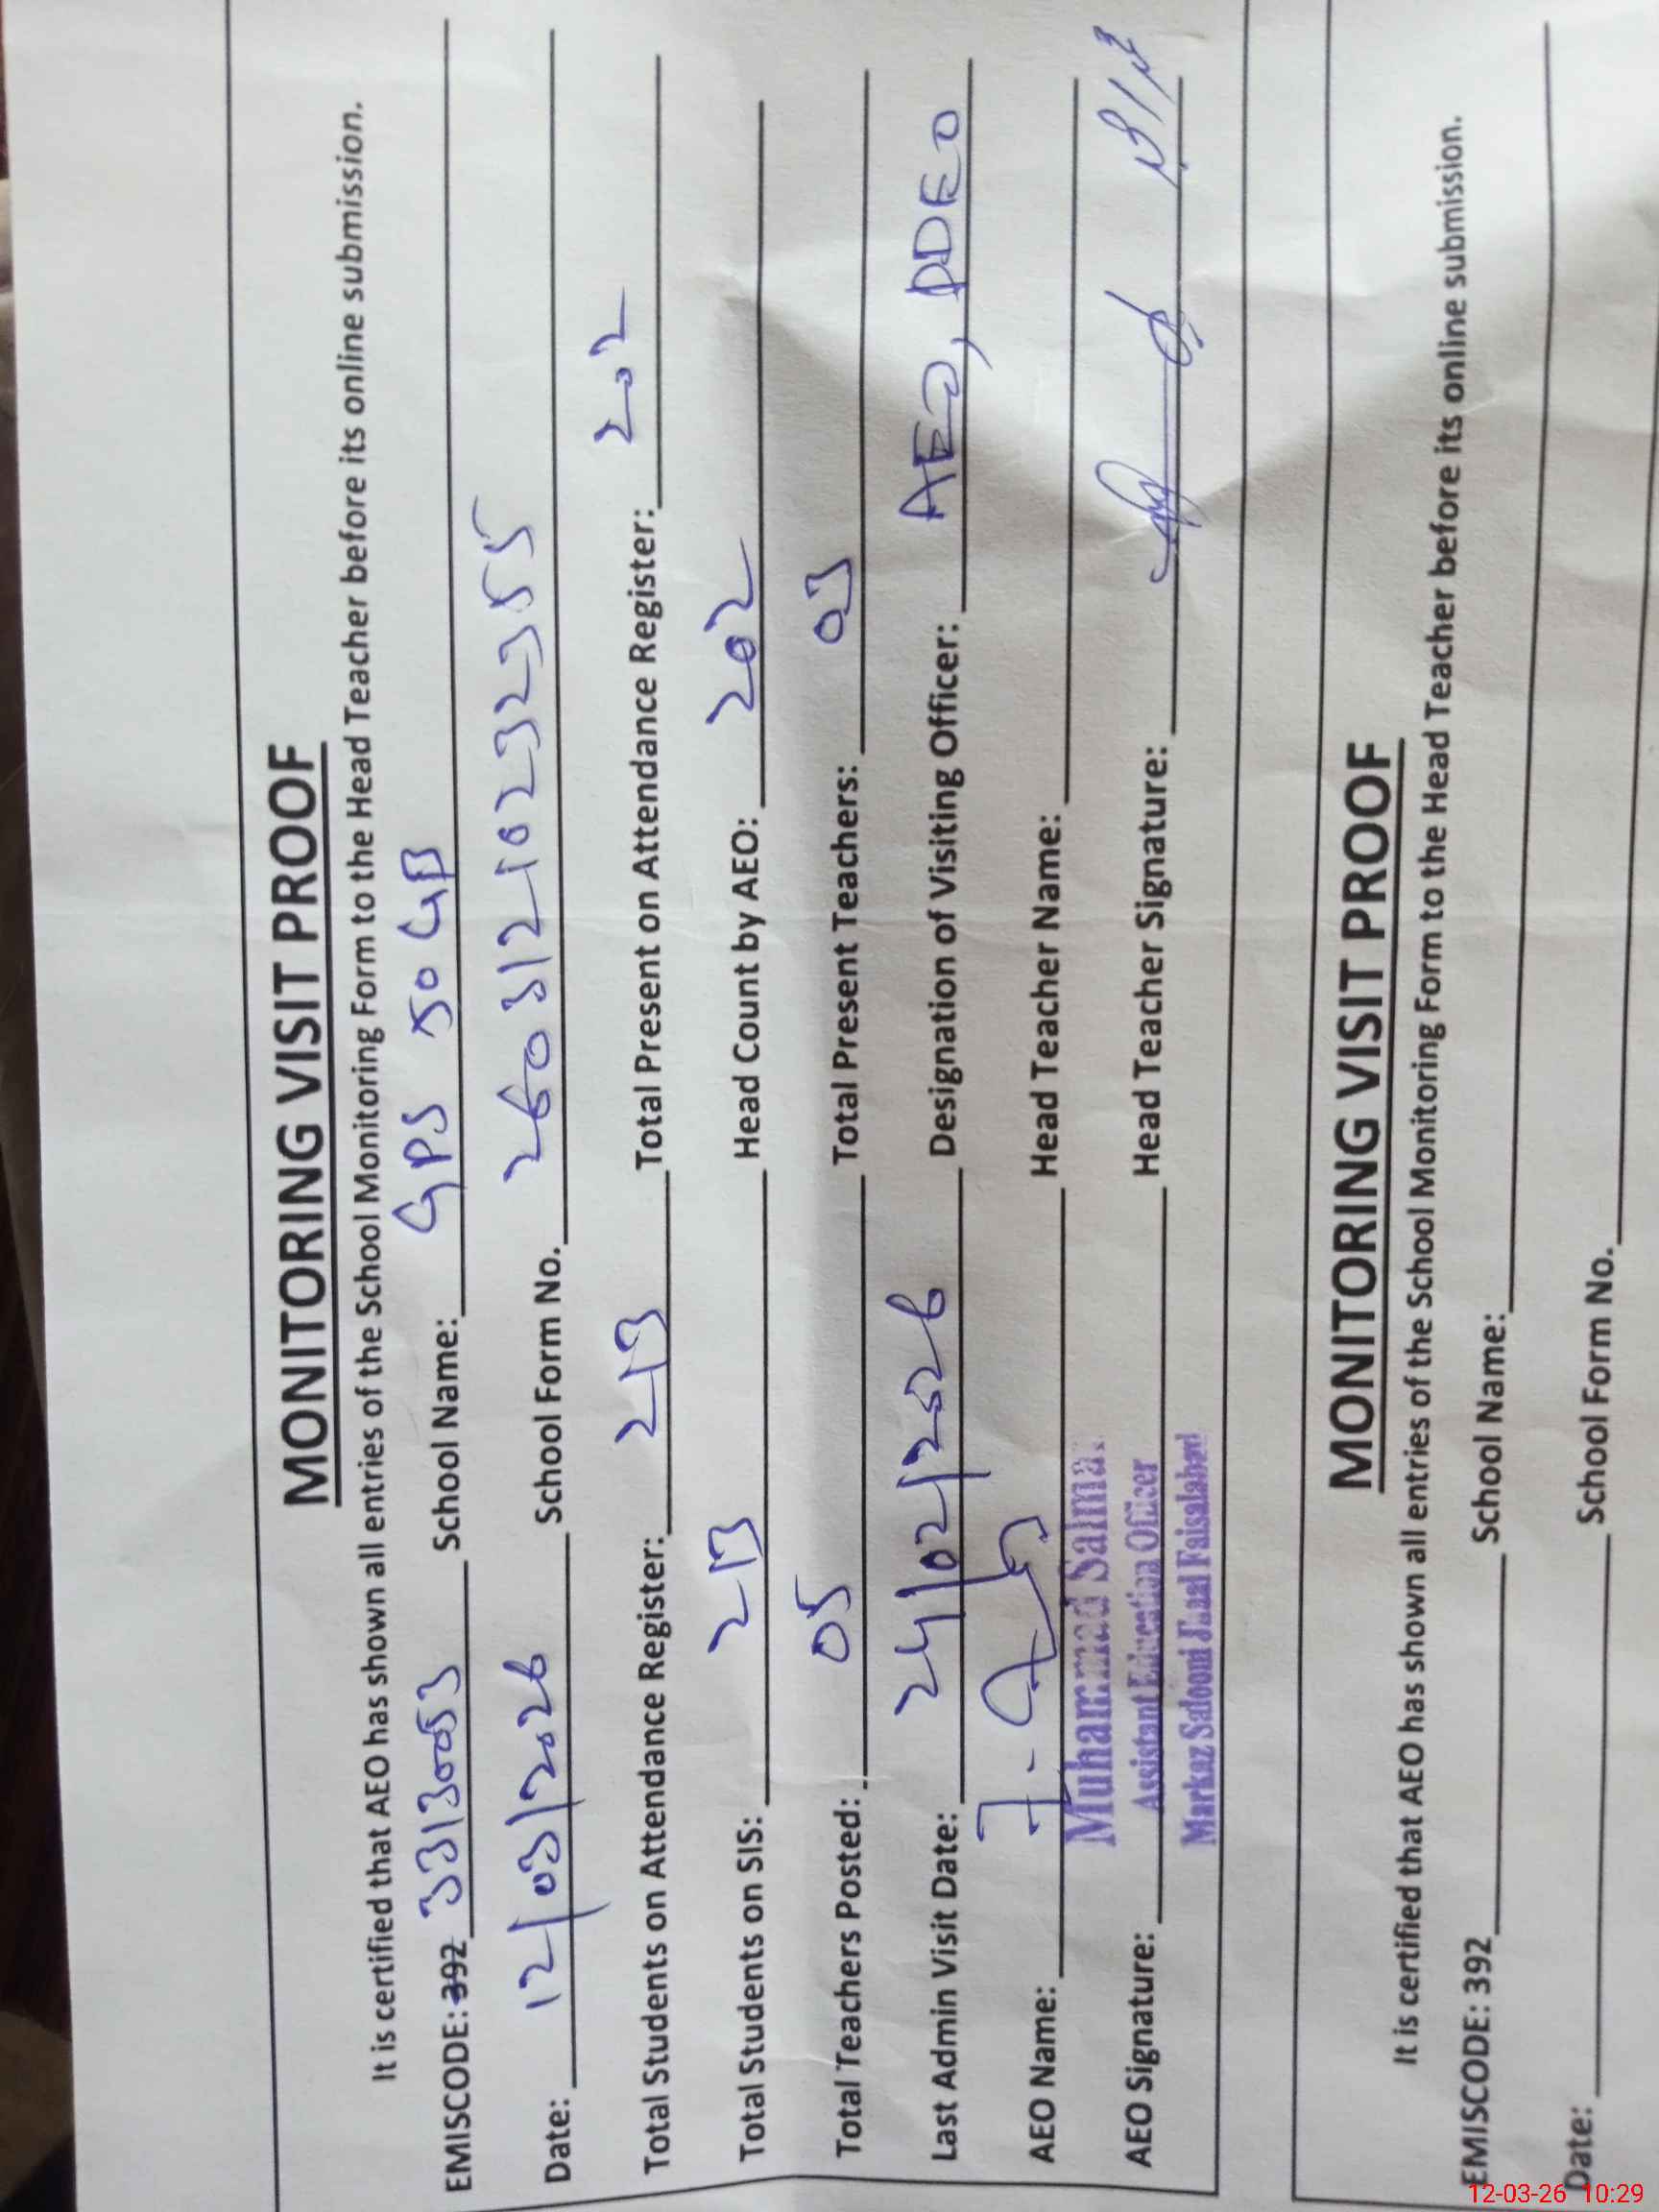 MONITORING VISIT PROOF
It is certified that AEO has shown all entries of the School Monitoring Form to the Head Teacher before its online submission.
EMISCODE: 392 33130053 School Name: GPS 50 GB
Date: 12/03/2026 School Form No. 260312102355
Total Students on Attendance Register: 213 Total Present on Attendance Register: 202
Total Students on SIS: 213 Head Count by AEO: 202
Total Teachers Posted: 05 Total Present Teachers: 03
Last Admin Visit Date: 24/02/2026 Designation of Visiting Officer: AEO, DDEO
AEO Name: Head Teacher Name:
Muhammad
AEO Signature: Assistant Education Officer Head Teacher Signature:
Markaz Faisalabad
MONITORING VISIT PROOF
It is certified that AEO has shown all entries of the School Monitoring Form to the Head Teacher before its online submission.
EMISCODE: 392 School Name:
Date: School Form No.
12-03-26 10:29